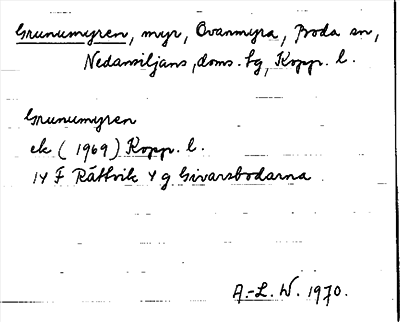 Grunumyren, myr, Ovanmyra, Boda sn,
Nedansiljans, doms. fg, Kopp. l.
Grunumyren
ek (1969) Kopp. l.
14 F Rättvik 4 g Givarsbodarna
A.-L. W. 1970.